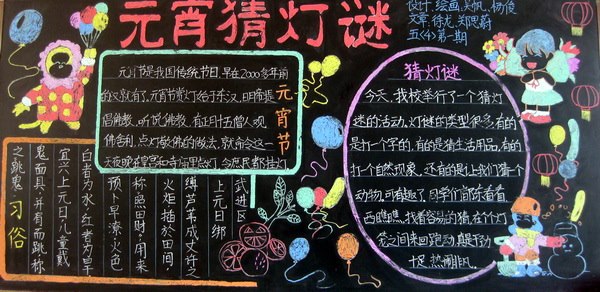 元宵猜灯谜
设计、绘画:吴帆、杨俊
文章:徐龙、郑思蔚
五(4)第一期
元宵节
元宵节是我国传统节日,早在2000多年前
的汉就有了,元宵赏灯始于东汉,明帝提
倡佛教,听说佛教,有正月十五僧人观
佛舍利,点灯敬佛的做法,就命令这一
天夜晚在皇宫和寺庙里点灯,令庶民都挂灯
猜灯谜
今天,我校举行了一个猜灯
谜的活动,灯谜的类型很多,有的
是打一个字的,有的是猜生活用品,有的
打一个自然现象,还有的是让我们猜一个
动物,可有趣了,同学们东看看、
西瞧瞧,找着容易的猜,在个灯
笼之间来回跑动,真是干劲
十足,热闹非凡。
习俗
武进区
上元日绑
缚芦苇成丈许之
火炬插於田间,
称照田财,用来
预卜旱潦,火色
白者为水,红者为旱
宜兴上元日儿童戴
鬼面具,并有而跳,称
之跳鬼